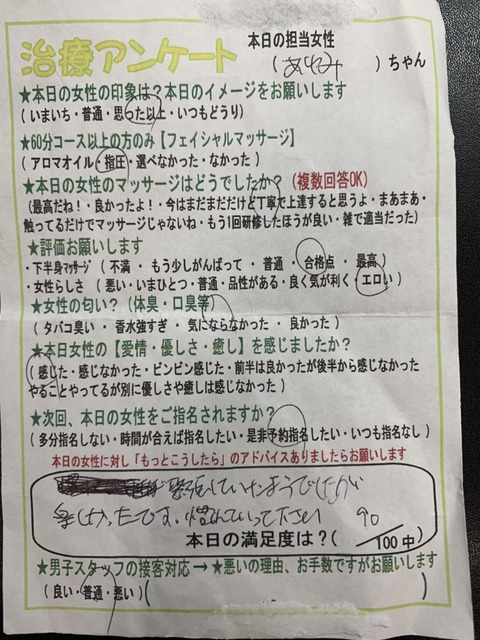 治療アンケート
本日の担当女性
( )ちゃん
★本日の女性の印象は?本日のイメージをお願いします
(いまいち・普通・思った以上・いつもどうり)
★60分コース以上の方のみ【フェイシャルマッサージ】
(アロマオイル・指圧・選べなかった・なかった)
★本日の女性のマッサージはどうでしたか?(複数回答OK)
(最高だね!・良かったよ!・今はまだまだだけど丁寧で上達すると思うよ・まあまあ・
触ってるだけでマッサージじゃないね・もう1回研修したほうが良い・雑で適当だった)
★評価お願いします
・下半身マッサージ(不満・もう少しがんばって・普通・合格点・最高)
・女性らしさ(悪い・いまひとつ・普通・品性がある・良く気が利く・エロい)
★女性の匂い?(体臭・口臭等)
(タバコ臭い・香水強すぎ・気にならなかった・良かった)
★本日女性の【愛情・優しさ・癒し】を感じましたか?
(感じた・感じなかった・ビンビン感じた・前半は良かったが後半から感じなかった
やることやってるが別に優しさや癒しは感じなかった)
★次回、本日の女性をご指名されますか?
(多分指名しない・時間が合えば指名したい・是非予約指名したい・いつも指名なし)
本日の女性に対し「もっとこうしたら」のアドバイスありましたらお願います
緊張していたようでしたが
楽しかったです。頑張って下さい
90
本日の満足度は?( /100中)
★男子スタッフの接客対応→★悪いの理由、お手数ですがお願いします
(良い・普通・悪い)( )